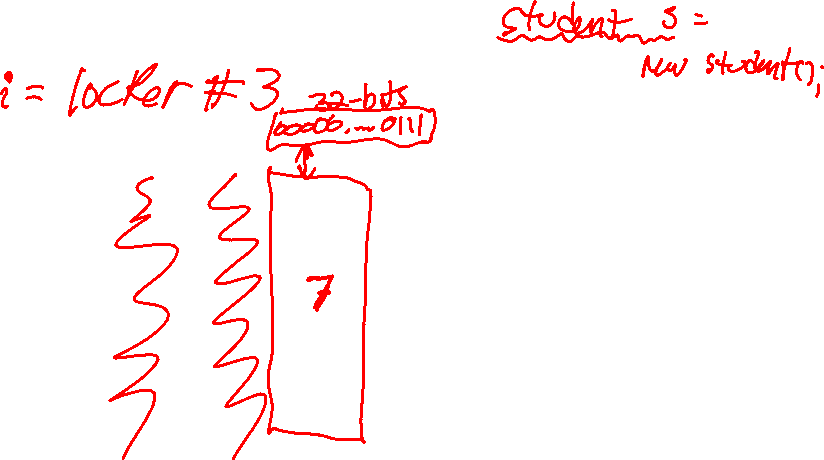 student s =
new student();
i = locker #3
32-bits
00000....0111
7